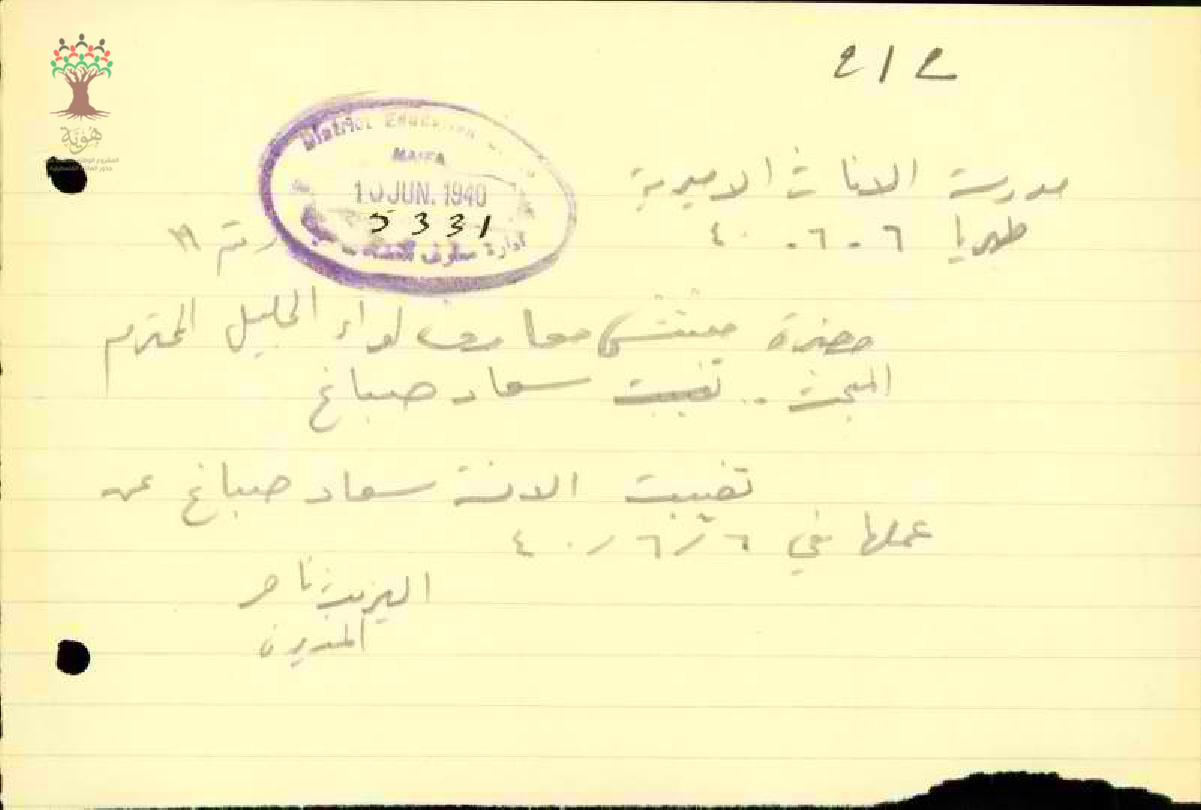 ٢١٢
هوية
District Education
HAIFA
10 JUN. 1940
5331
ادارة معارف
مدرسة الاناث الاميرية
طبريا ٦ـ٦ـ٤٠
رقم
حضرة مفتش معارف لواء الجليل المحترم
المبحث .. تغيبت سعاد صباغ
تغيبت الانسة سعاد صباغ عن
عملها في ٦/٦/٤٠
اليزابيت ناصر
المديرة